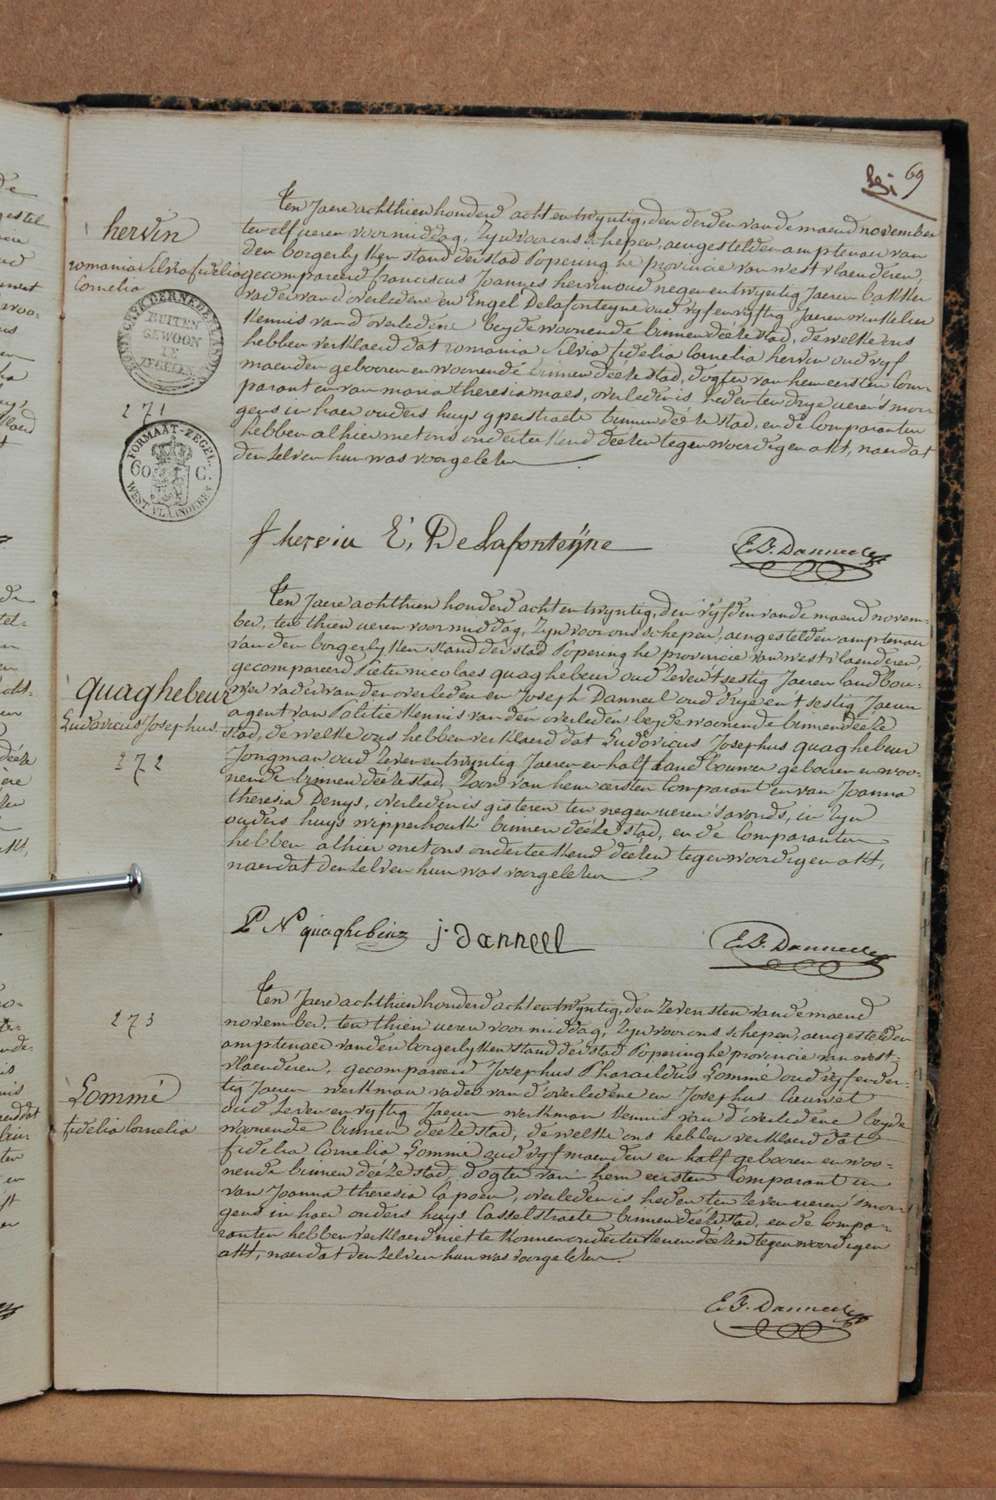 69
hervin
romania silvia fidelia
Cornelia
BUITEN
GEWOON
271
FORMAAT-ZEGEL
60 C.
WEST VLAANDEREN
Ten Jaere achthien honderd acht en twyntig, den derden van de maend november
ten elf ueren voormiddag, Zyn voor ons schepen, aengestelden amptenaer van
den borgerlyken stand der stad Poperinghe provincie van westvlaenderen,
gecompareerd franciscus Joannes hervin oud negen en twyntig Jaeren bakker
vader van d'overledene en Engel Delafonteyne oud vyf en vyftig Jaeren winkelier
Kennis van d'overledene beyde woonende binnen deéze stad, de welke ons
hebben verklaerd dat romania Silvia fidelia Cornelia hervin oud vyf
maenden geboren en woonende binnen deéze stad, dogter van hem eersten Com-
parant en van maria theresia maes, overleden is heden ten drye ueren 's mor-
gens in haer ouders huys yperstraete binnen deéze stad, en de Comparanten
hebben alhier met ons onderteekend deézen tegenwoordigen akt, naer dat
den zelven hun was voorgelezen
f hervin E, Delafonteÿne
E.F. Danneel
quaghebeur
Ludovicus Josephus
272
Ten Jaere achthien honderd acht en twyntig, den vyfden van de maend novem-
ber, ten thien ueren voormiddag, Zyn voor ons schepen, aengestelden amptenaer
van den borgerlyken stand der stad Poperinghe provincie van westvlaenderen,
gecompareerd Pieter nicolaes quaghebeur oud Zeven t sestig Jaeren landbou-
wer vader van den overleden en Joseph Danneel oud drye en t sestig Jaeren
agent van Politie Kennis van den overleden beyde woonende binnen deéze
stad, de welke ons hebben verklaerd dat Ludovicus Josephus quaghebeur
Jongman oud Zeven en twyntig Jaeren en half Landbouwer geboren en woo-
nende binnen deéze stad, Zoon van hem eersten Comparant en van Joanna
theresia Denys, overleden is gisteren ten negen ueren 's avonds, in Zyn
ouders huys wipperhoek binnen deéze stad, en de Comparanten
hebben alhier met ons onderteekend deézen tegenwoordigen akt,
naer dat den zelven hun was voorgelezen
P N quaghebeur j. danneel
E.F. Danneel
273
Lommé
fidelia Cornelia
Ten Jaere achthien honderd acht en twyntig, den Zevensten van de maend
november, ten thien ueren voormiddag, Zyn voor ons schepen, aengestelden
amptenaer van den borgerlyken stand der stad Poperinghe provincie van west-
vlaenderen, gecompareerd Josephus Pharaildus Lommé oud vyf en der-
tig Jaeren werkman vader van d'overledene en Josephus Cauwet
oud Zeven en vyftig Jaeren werkman Kennis van d'overledene beyde
woonende binnen deéze stad, de welke ons hebben verklaerd dat
fidelia Cornelia Lommé oud vyf maenden en half geboren en woo-
nende binnen deéze stad, dogter van hem eersten Comparant en
van Joanna theresia Capoen, overleden is heden ten Zeven ueren 's mor-
gens in haer ouders huys Casselstraete binnen deéze stad, en de Compa-
ranten hebben verklaerd niet te konnen onderteekenen deézen tegenwoordigen
akt, naer dat den zelven hun was voorgelezen.
E.F. Danneel